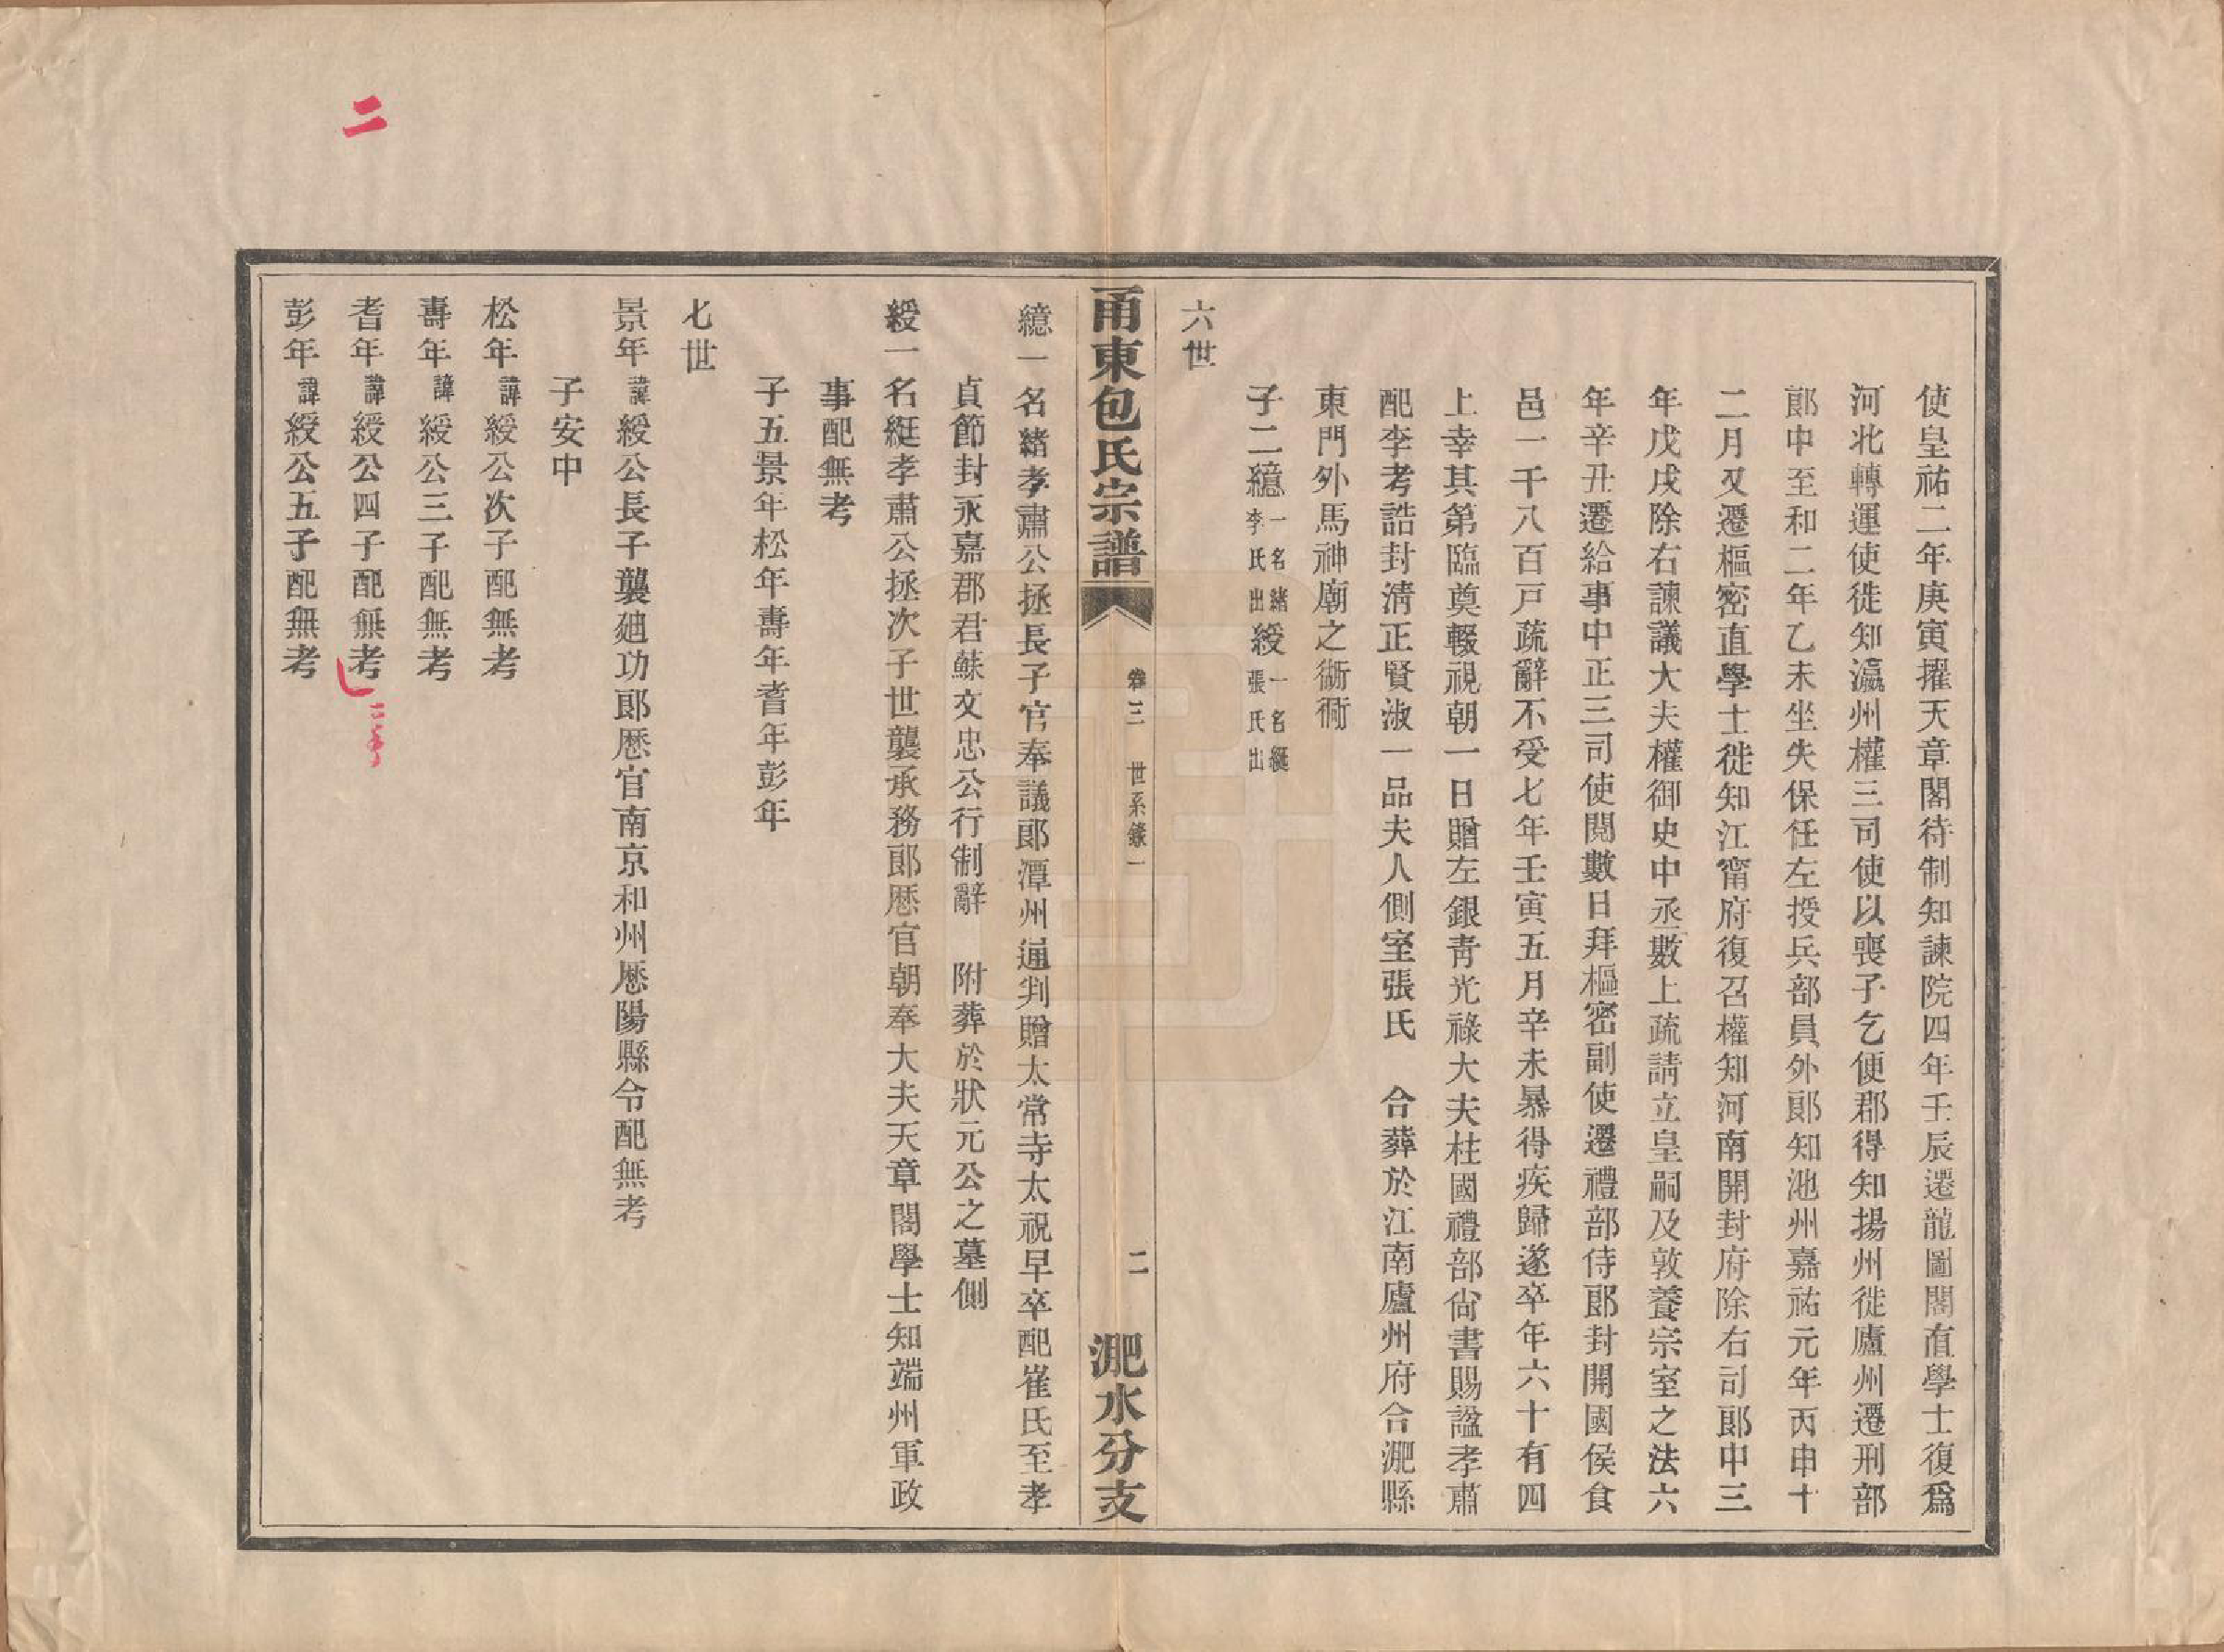 使皇祐二年庚寅擢天章閣待制知諫院四年壬辰遷龍圖閣直學士復爲
河北轉運使徙知瀛州權三司使以喪子乞便郡得知揚州徙廬州遷刑部
郎中至和二年乙未坐失保任左授兵部員外郎知池州嘉祐元年丙申十
二月又遷樞密直學士徙知江甯府復召權知河南開封府除右司郎中三
年戊戌除右諫議大夫權御史中丞數上疏請立皇嗣及敦養宗室之法六
年辛丑遷給事中正三司使閱數日拜樞密副使遷禮部侍郎封開國侯食
邑一千八百戸疏辭不受七年壬寅五月辛未暴得疾歸遂卒年六十有四
上幸其第臨奠輟視朝一日贈左銀青光祿大夫柱國禮部尙書賜諡孝肅
配李考誥封淸正賢淑一品夫人側室張氏　合葬於江南廬州府合淝縣
東門外馬神廟之衚衕
子二繶一名緒李氏出綬一名綖張氏出
六世
甬東包氏宗譜　卷三　世系錄一　二　淝水分支
繶一名緒孝肅公拯長子官奉議郎潭州通判贈太常寺太祝早卒配崔氏至孝
貞節封永嘉郡君蘇文忠公行制辭　附葬於狀元公之墓側
綬一名綖孝肅公拯次子世襲承務郎歷官朝奉大夫天章閣學士知端州軍政
事配無考
子五景年松年壽年耆年彭年
七世
景年諱綬公長子襲廸功郎歷官南京和州歷陽縣令配無考
子安中
松年諱綬公次子配無考
壽年諱綬公三子配無考
耆年諱綬公四子配無考
彭年諱綬公五子配無考
二